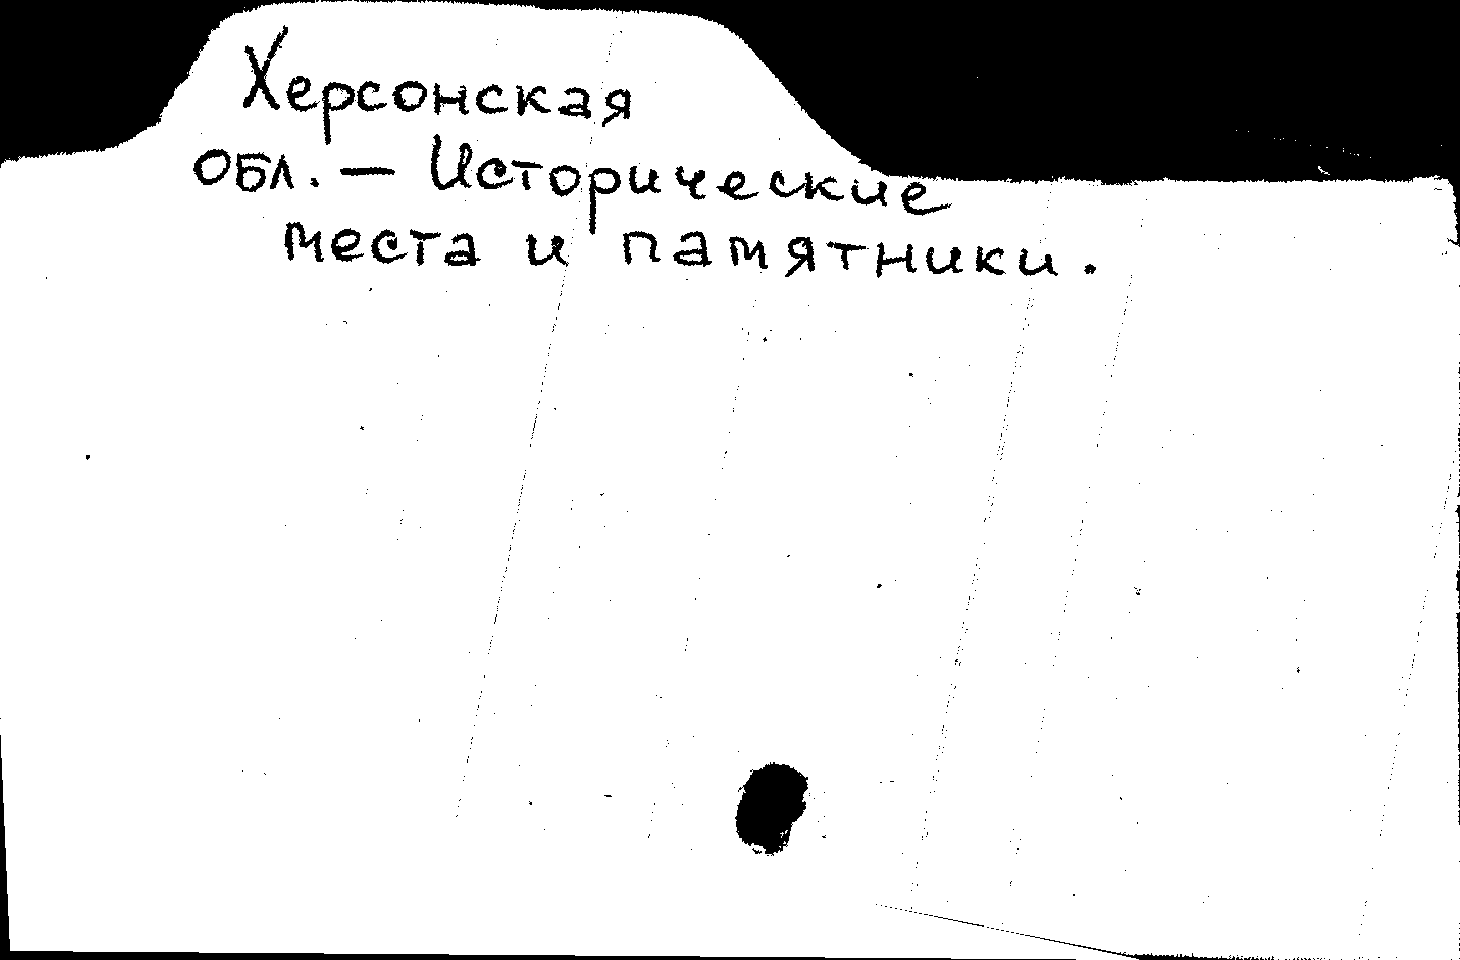 Херсонская
обл. — Исторические
места и памятники.